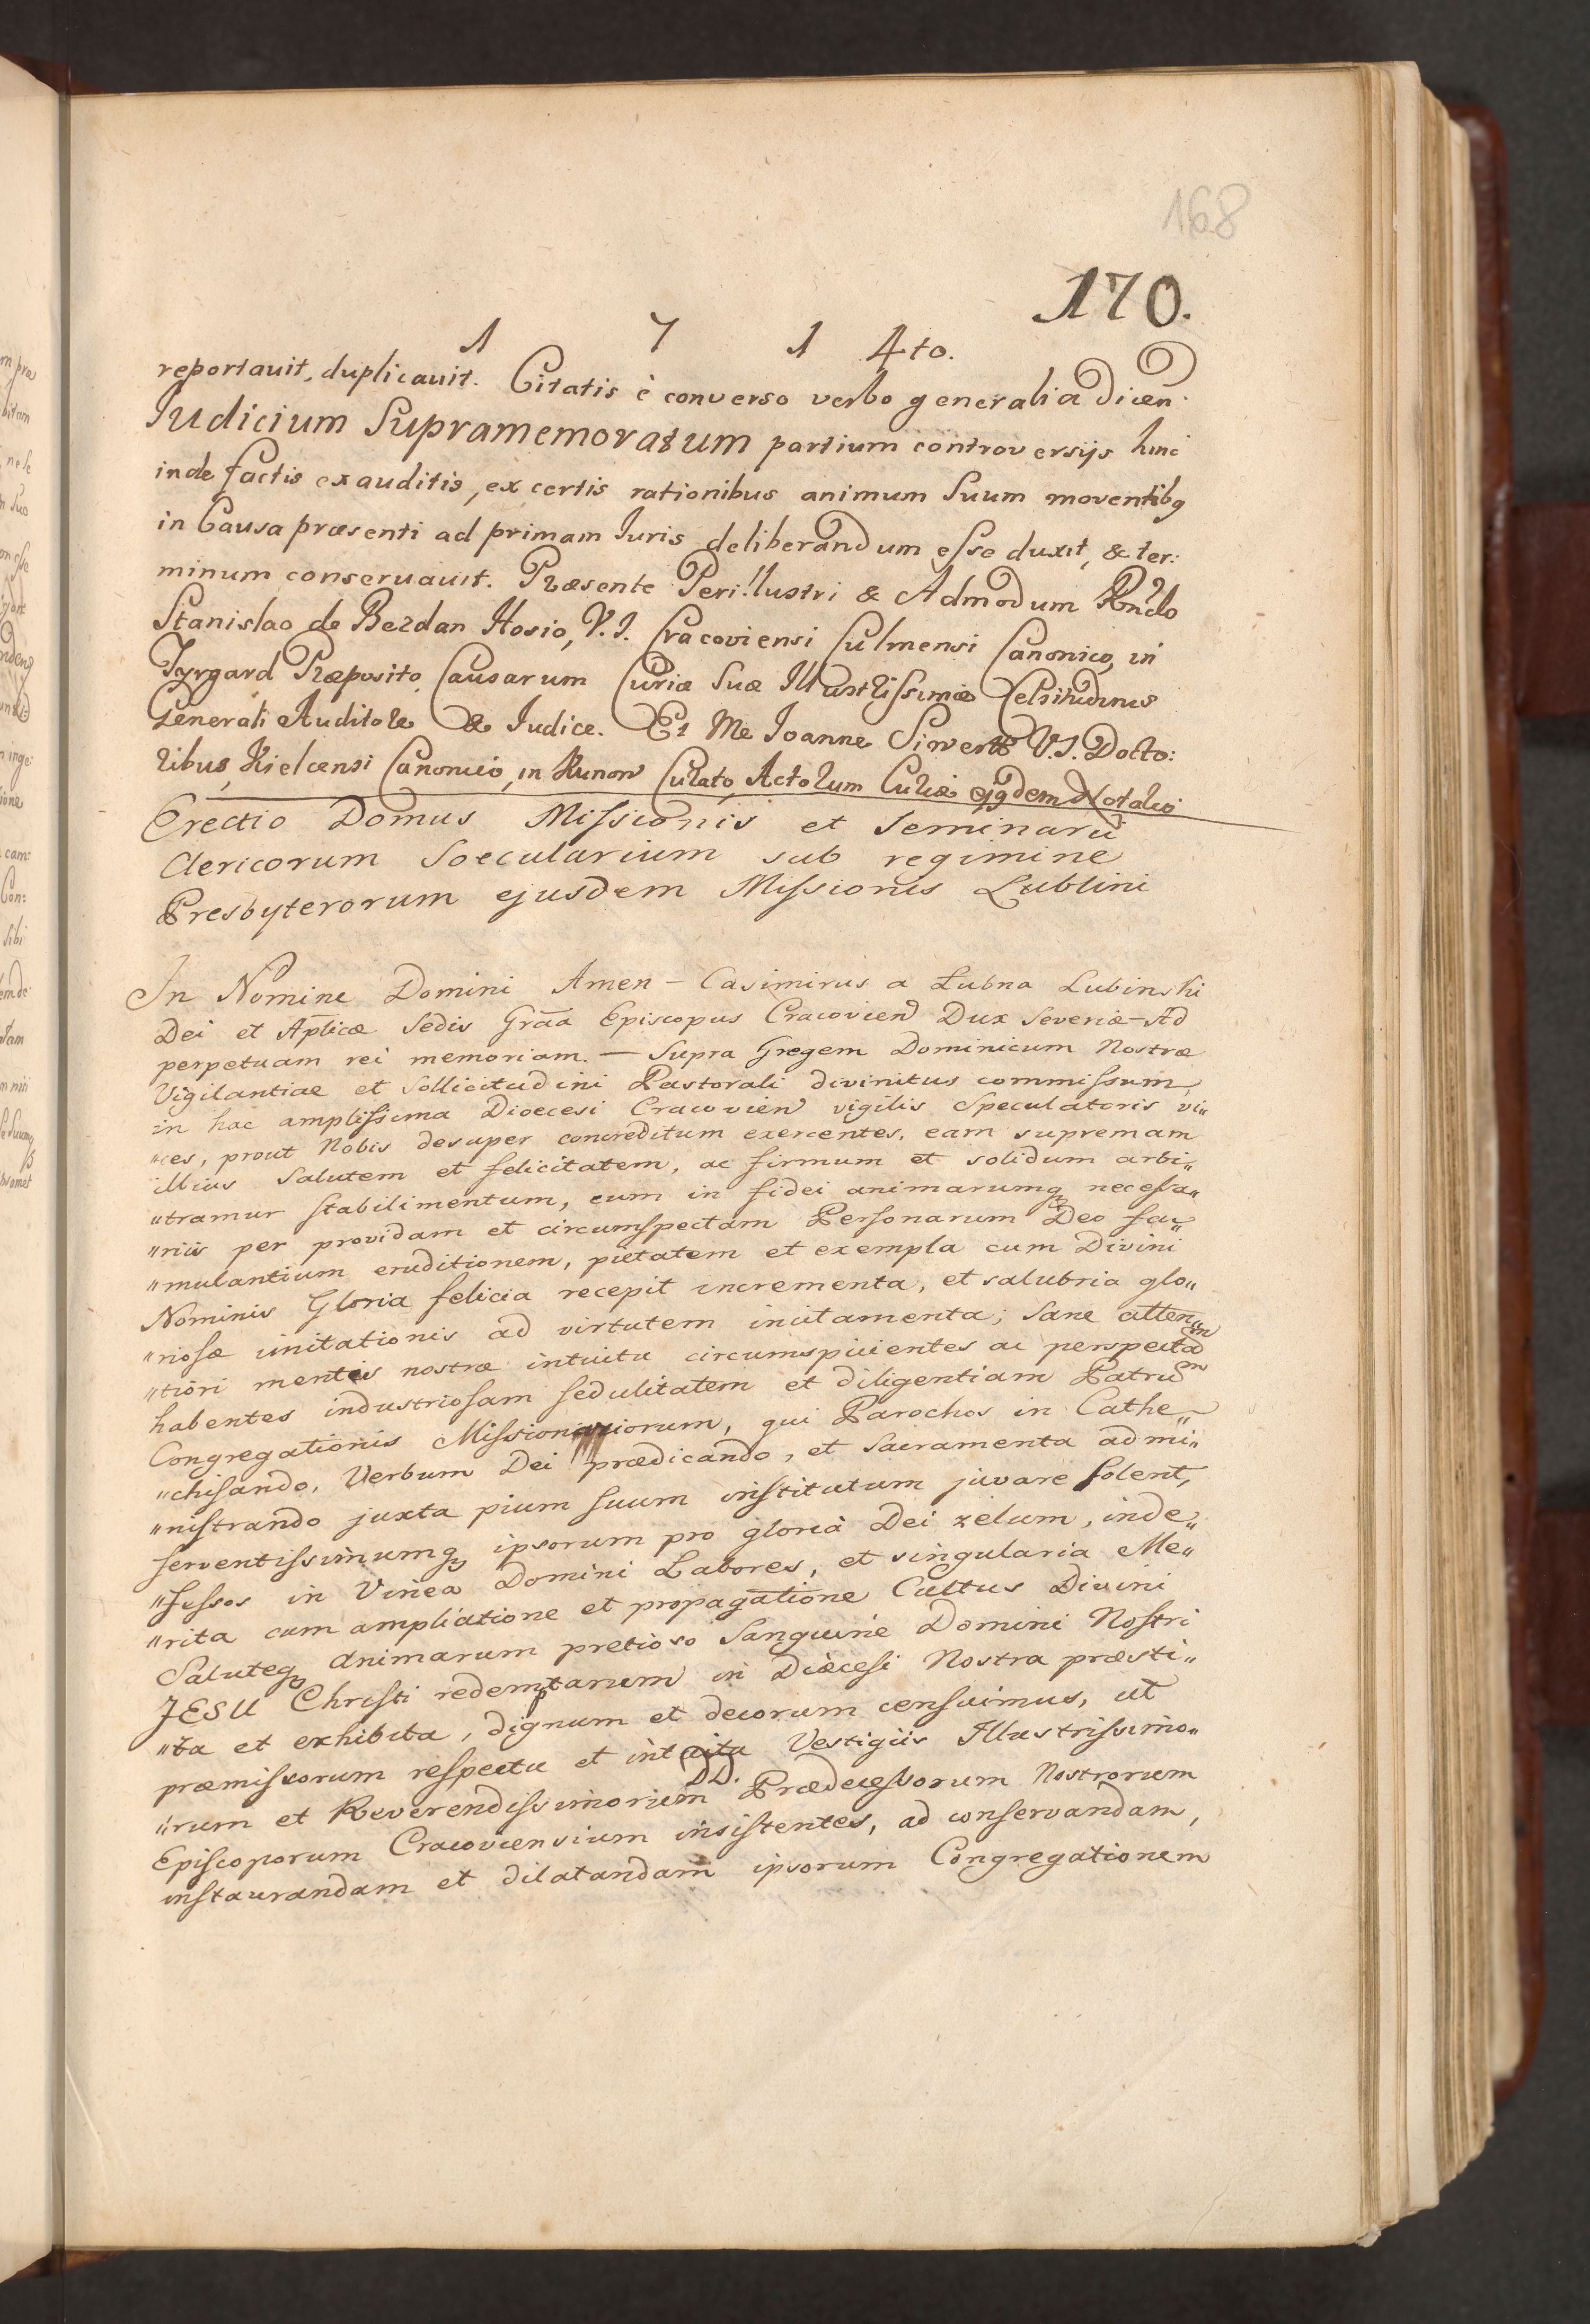 168
170.
1 7 1 4to.
reportauit, duplicauit. Citatis è converso verbo generali a Dicen:
Iudicium Supramemoratum partium controversijs hinc
inde factis exauditis, ex certis rationibus animum Suum moventibq
in Causa præsenti ad primam Iuris deliberandum eſse duxit, & ter:
minum conseruauit. Præsente Perillustri & Admodum Rndo
Stanislao de Bezdan Hosio, V.I. Cracoviensi Culmensi Canonico, in
Tyrgard Præposito, Causarum Curiæ Suæ Illustriſsimæ Celsitudinis
Generali Auditore & Iudice. Et Me Ioanne Siwert V.I. Docto:
ribus, Kielcensi Canonico, in Runow Curato, Actorum Curiæ ejqdem Notario
Erectio Domus Miſsionis et Seminarii
Clericorum Sœcularium sub regimine
Presbyterorum ejusdem Miſsionis Lublini
In Nomine Domini Amen – Casimirus a Lubna Lubinski
Dei et Aplicæ Sedis Graa Episcopus Cracovien Dux Severiæ – Ad
perpetuam rei memoriam. – Supra Gregem Dominicum Nostræ
Vigilantiae et Sollicitudini Pastorali divinitus commiſsum,
in hac ampliſsima Dioecesi Cracovien vigilis Speculatoris vi„
„ces, prout Nobis desuper concreditum exercentes, eam supremam
illius Salutem et felicitatem, ac firmum et solidum arbi„
„tramur ſtabilimentum, cum in fidei animarumq neceſsa„
„riis per providam et circumſpectam Perſonarum Deo fa„
„mulantium eruditionem, pietatem et exempla cum Divini
Nominis Gloria felicia recepit incrementa, et salubria glo„
„rioſæ imitationis ad virtutem incitamenta; Sane atten„
„tiori mentis nostræ intuitu circumspicientes ac perspectam
habentes industriosam ſedulitatem et diligentiam Patrum
Congregationis Miſsionariorum, qui Parochos in Cathe„
„chiſando, Verbum Dei prædicando, et Sacramenta admi„
„niſtrando juxta pium ſuum inſtitutum juvare ſolent,
ferventiſsimumq ipsorum pro gloriâ Dei zelum, inde„
„feſsos in Vinea Domini Labores, et singularia Me„
„rita cum ampliatione et propagatione Cultus Divini
Saluteq Animarum pretioso Sanguine Domini Noſtri
JESU Chriſti redemptarum in Diœceſi Nostra præsti„
„ta et exhibita, dignum et decorum cenſuimus, ut
præmiſsorum reſpectu et intuitu Vestigiis Illustriſsimo„
„rum et Reverendiſsimorum DD. Prædeceſsorum Nostrorum
Epiſcoporum Cracoviensium inſiſtentes, ad conſervandam,
inſtaurandam et dilatandam ipsorum Congregationem